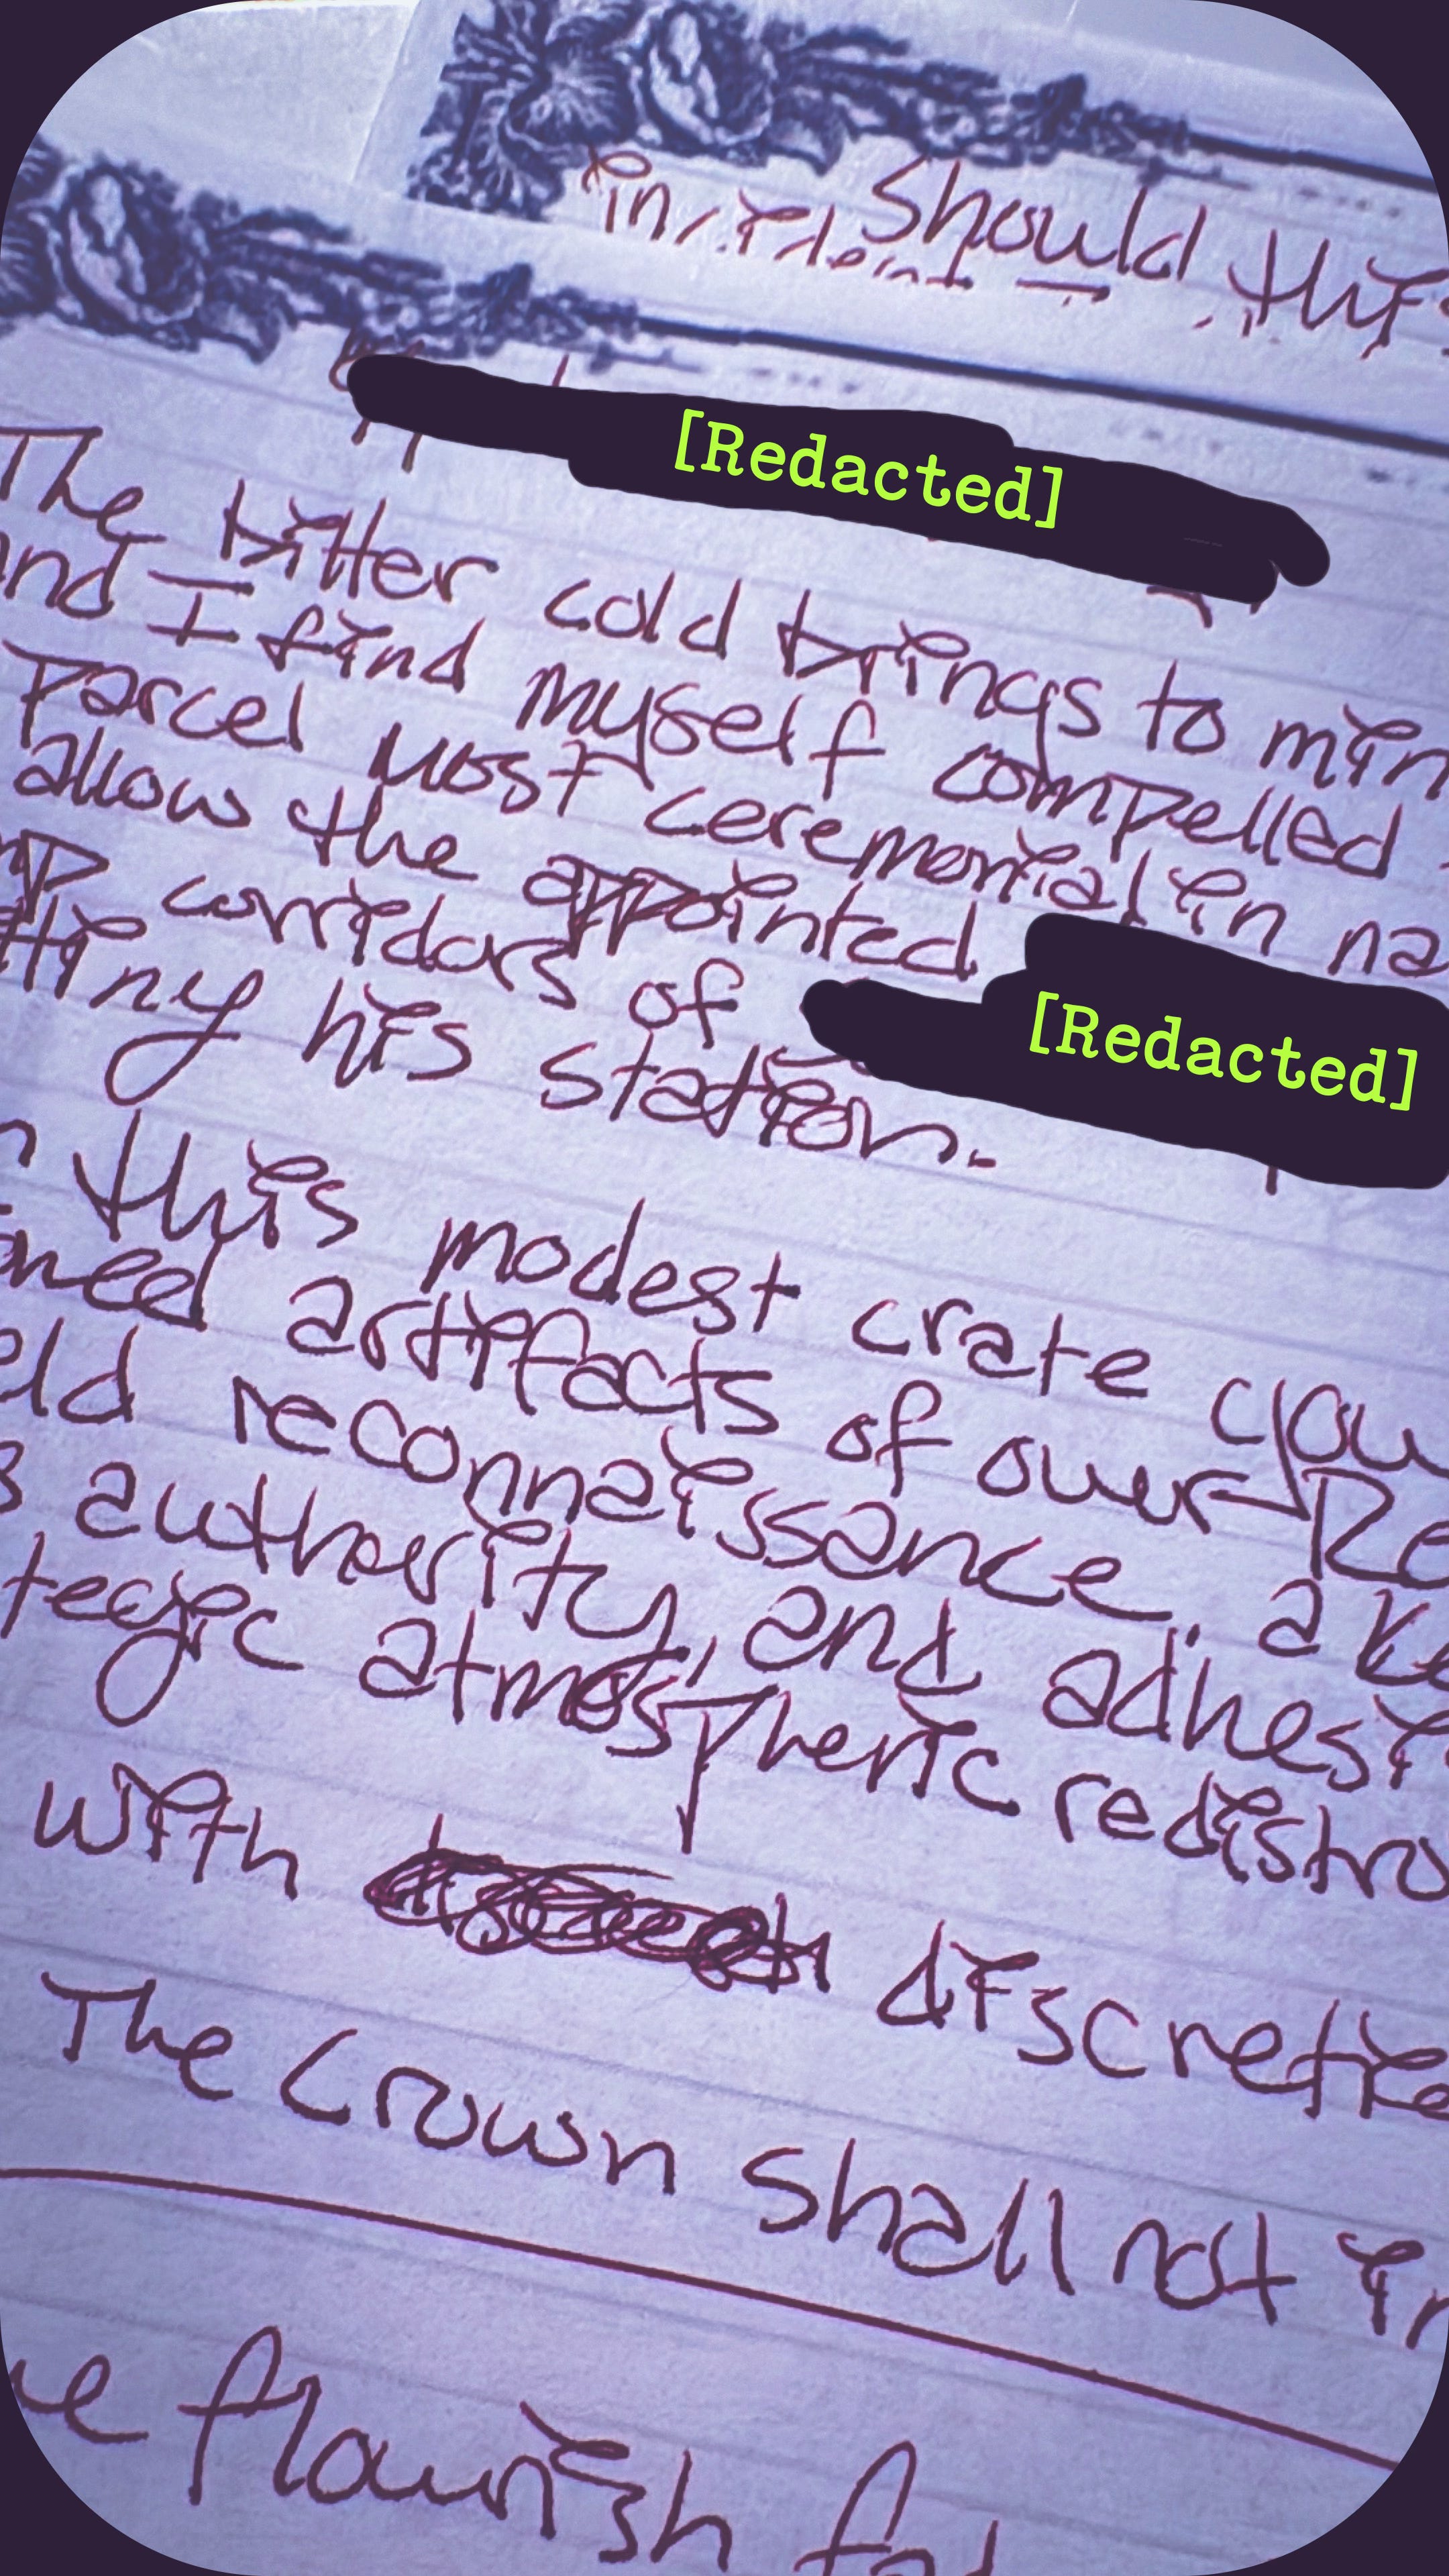 Should this
incident
[Redacted]
The bitter cold brings to min
and I find myself compelled
parcel most ceremonial in na
allow the appointed
corridors of [Redacted]
his station.
this modest crate you
artifacts of our Re
eld reconnaissance, a ke
authority, and adhesi
tegic atmospheric redistru
with discretio
The Crown shall not in
flourish